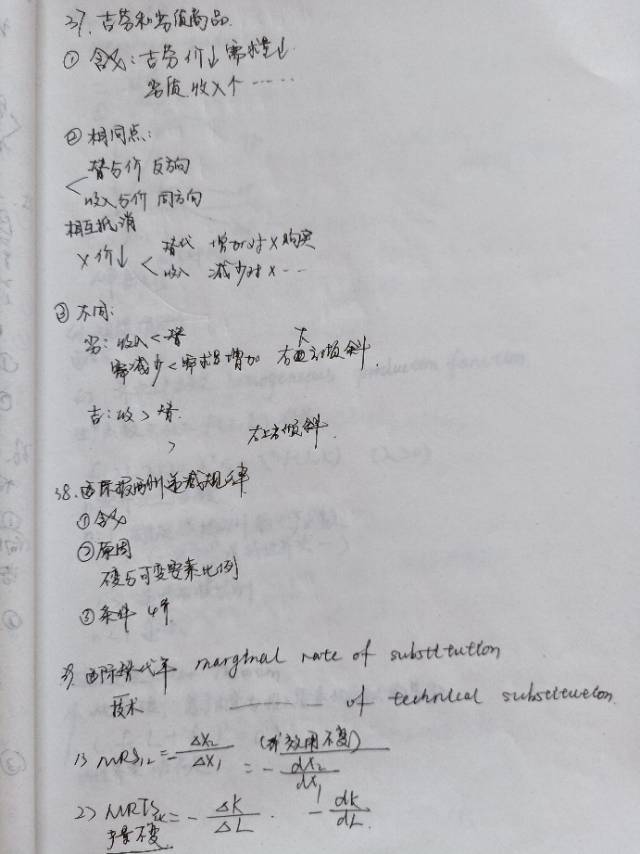 37. 吉芬和劣质商品.
① 含义: 吉芬 价↓ 需求量↓.
劣质 收入个 ……
② 相同点:
替与价 反方向
收入与价 同方向
相互抵消
X价↓ < 替代 增加对X购买
收入 减少对X …
③ 不同:
劣: 收入<替
需减少<需求量增加 右下方倾斜.
吉: 收>替.
> 右上方倾斜.
38. 边际报酬递减规律
①含义
②原因
不变与可变要素比例
③条件 4个
39 边际替代率 marginal rate of substitution
技术 ------- of technical substitution.
1) MRS₁₂ = -ΔX₂/ΔX₁ (效用不变) = -dX₂/dX₁
2) MRTS_LK = -ΔK/ΔL. -dk/dL.
产量不变